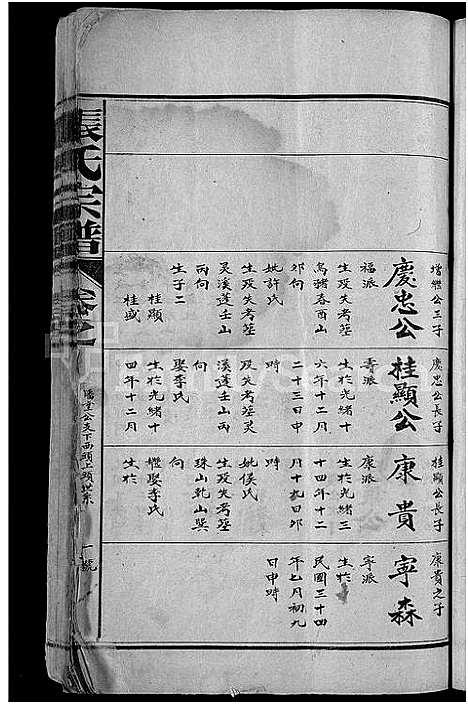 張氏宗譜
卷之
一號
增繼公三子
慶忠公
福派
生歿失考葬
烏豬春酉山
卯向
妣許氏
生歿失考葬
吳溪蓬壬山
丙向
生子二
桂顯
桂盛
慶忠公長子
桂顯公
壽派
生於光緒十
六年十二月
二十三日申
時
歿失考葬吳
溪蓬壬山丙
向
娶李氏
生於光緒十
四年十二月
桂顯公長子
康貴
康派
生於光緒三
十四年十二
月十九日卯
時
妣侯氏
生歿失考葬
珠山乾山巽
向
繼娶李氏
生於
康貴之子
寧森
寧派
生於
民國三十四
年七月初九
日申時